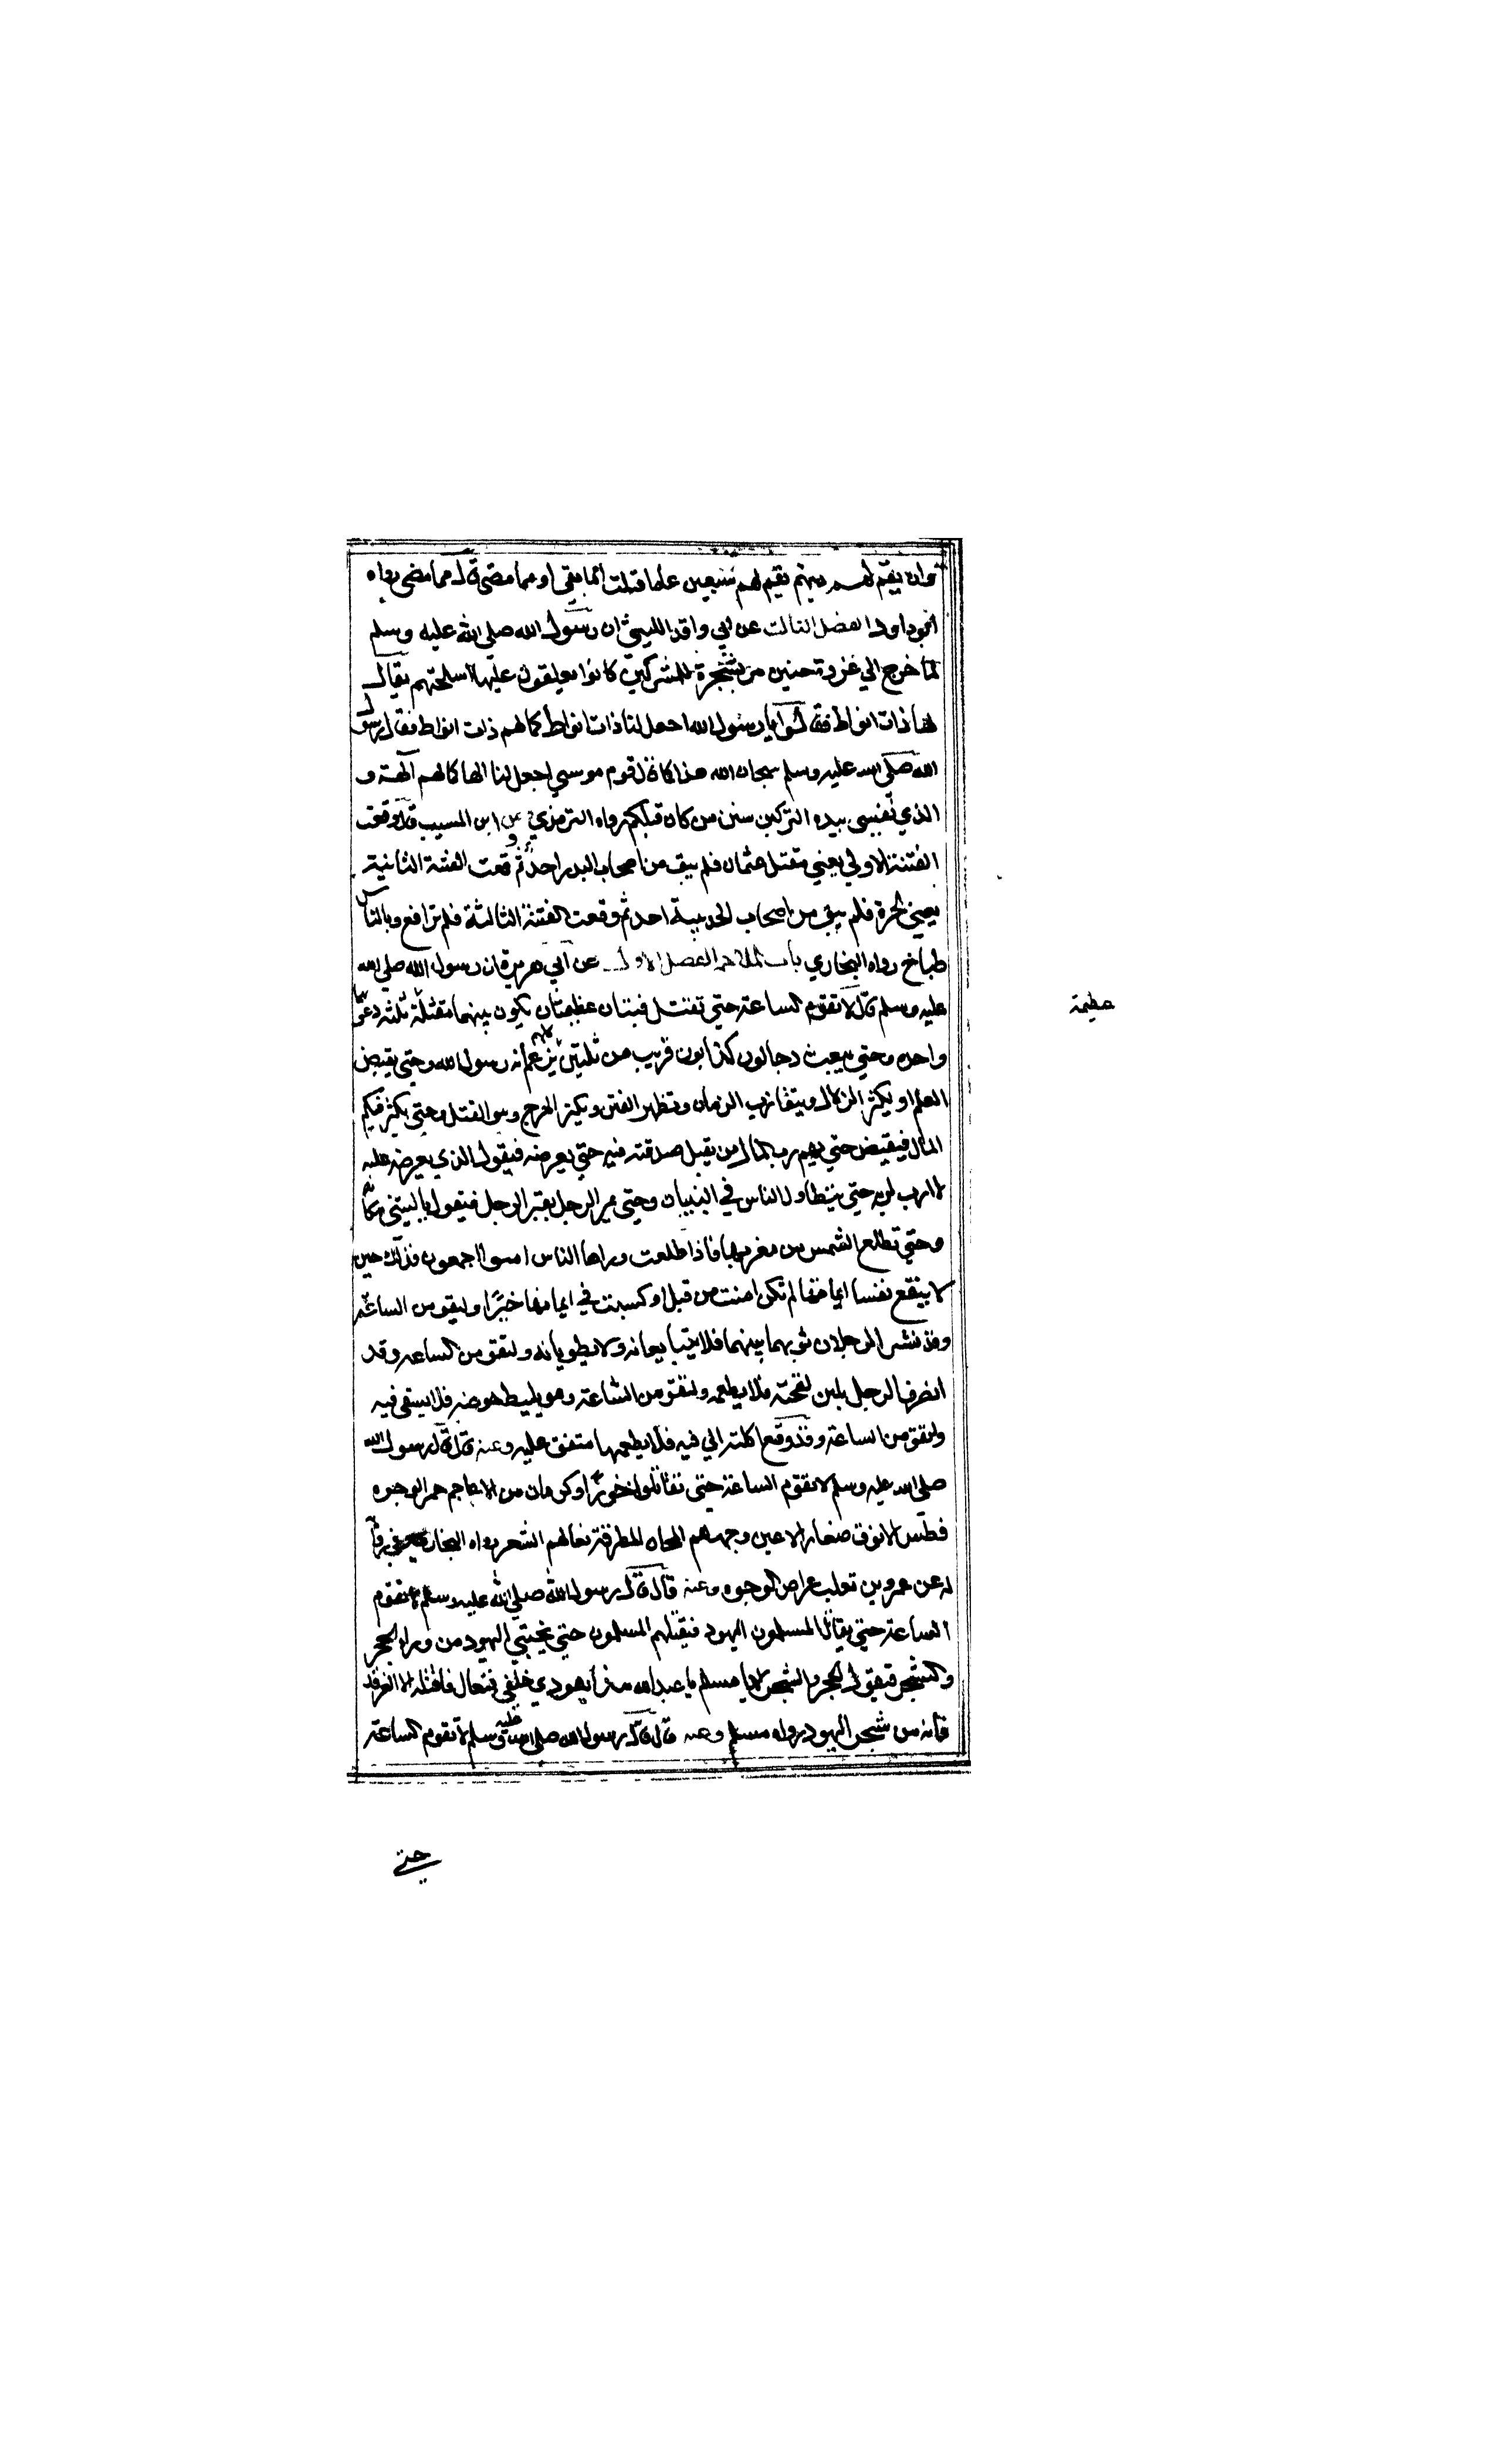 وان يقم لهم دينهم يقم لهم سبعين عاما قلت امما بقي او مما مضى قال مما مضى رواه
ابوداود الفصل الثالث عن ابي واقد الليثي ان رسول الله صلى الله عليه وسلم
لما خرج الي غزوة حنين مر بشجرة للمشركين كانوا يعلقون عليها اسلحتهم يقال
لها ذات انواط فقالوا يا رسول الله اجعل لنا ذات انواط كما لهم ذات انواط فقال رسول
الله صلى الله عليه وسلم سبحان الله هذا كما قال قوم موسي اجعل لنا الها كما لهم آلهة و
الذي نفسي بيده لتركبن سنن من كان قبلكم رواه الترمذي و عن ابن المسيب قال وقعت
الفتنة الاولي يعني مقتل عثمان فلم يبق من اصحاب البدر احد ثم وقعت الفتنة الثانية
يعني الحرة فلم يبق من اصحاب الحديبية احد ثم وقعت الفتنة الثالثة فلم ترافع وبالناس
طباخ رواه البخاري باب الملاحم الفصل الاول عن ابي هريرة ان رسول الله صلى الله
عليه وسلم قال لا تقوم الساعة حتي تقتتل فئتان عظيمتان يكون بينهما مقتلة دعواهما
عظيمة
واحده وحتي يبعث دجالون كذابون قريب من ثلثين كلهم يزعم انه رسول الله وحتي يقبض
العلم او يكثر الزلازل ويتقارب الزمان وتظهر الفتن ويكثر الهرج وهو القتل وحتي يكثر فيكم
المال فيفيض حتي يهم رب المال من يقبل صدقته فيه حتي يعرضه فيقول الذي يعرضه عليه
لا ارب لي به حتي يتطاول الناس في البنيان وحتي يمر الرجل بقبر الرجل فيقول يا ليتني مكانه
وحتي تطلع الشمس من مغربها فاذا طلعت وراها الناس امنوا اجمعون فذلك حين
لا ينفع نفسا ايمانها لم تكن امنت من قبل او كسبت في ايمانها خيرا ولتقومن الساعة
وقد نشر الرجلان ثوبهما بينهما فلا يتبايعانه ولا يطويانه ولتقومن الساعه وقد
انصرف الرجل بلبن لقحته فلا يطعمه ولتقومن الساعة وهو يليط حوضه فلا يسقي فيه
ولتقومن الساعة وقد رفع اكلته الي فيه فلا يطعمها متفق عليه وعنه قال قال رسول الله
صلى الله عليه وسلم لا تقوم الساعة حتي تقاتلوا خوزا وكرمان من الاعاجم حمر الوجوه
فطس الانوف صغار الاعين وجوههم المجان المطرقة نعالهم الشعر رواه البخاري وفي رواية
له عن عمرو بن تغلب عراض الوجوه وعنه قال قال رسول الله صلى الله عليه وسلم لا تقوم
الساعة حتي يقاتل المسلمون اليهود فيقتلهم المسلمون حتي يختبئ اليهود من وراء الحجر
والشجر فيقول الحجر والشجر يا مسلم يا عبد الله هذا يهودي خلفي فتعال فاقتله الا الغرقد
فانه من شجر اليهود رواه مسلم وعنه قال قال رسول الله صلى الله عليه وسلم لا تقوم الساعة
حتي